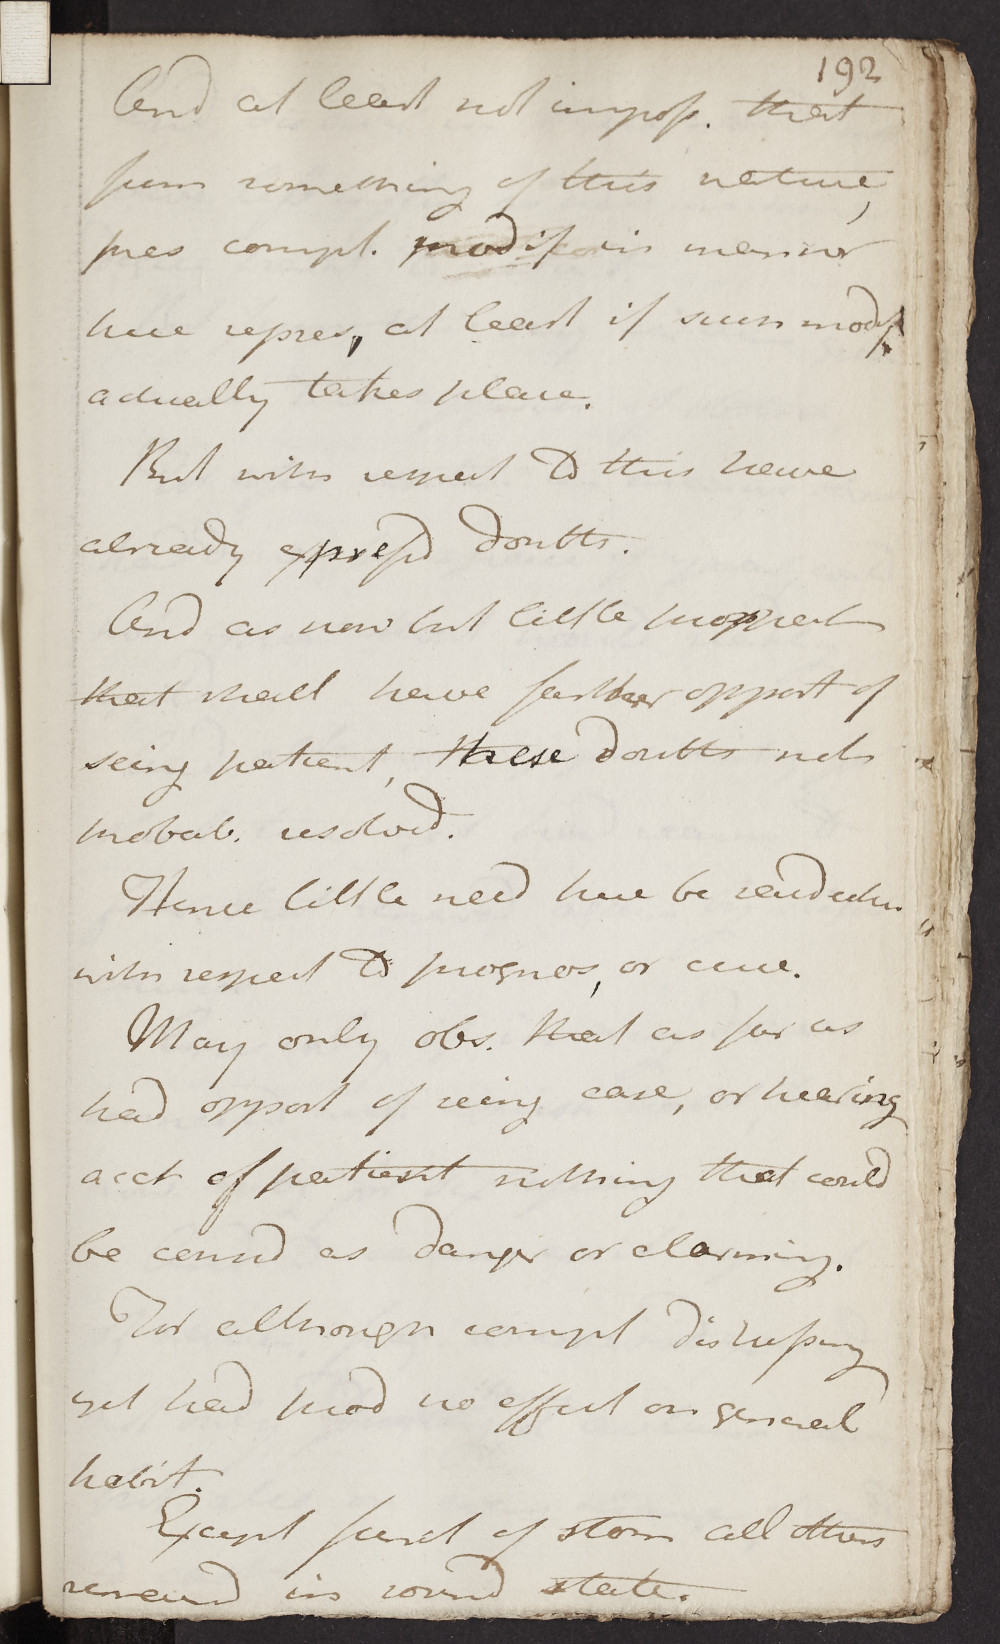 192
And at least not imposs. that
from something of this nature,
pres compl. modif in manner
here repres, at least if such modif.
actually takes place.
But with respect to this have
already express'd doubts.
And as now but little prospect
that shall have farther opport of
seing patient, these doubts not
probab. resolved.
Hence little need here be said eithr
with respect to prognos, or cure.
May only obs. that as far as
had opport of seing case, or hearing
acct of patient nothing that could
be consd as danger or alarming.
For although compl distressing
yet had prod no effect on general
habit.
Except funct of stom all others
remaind in sound state.